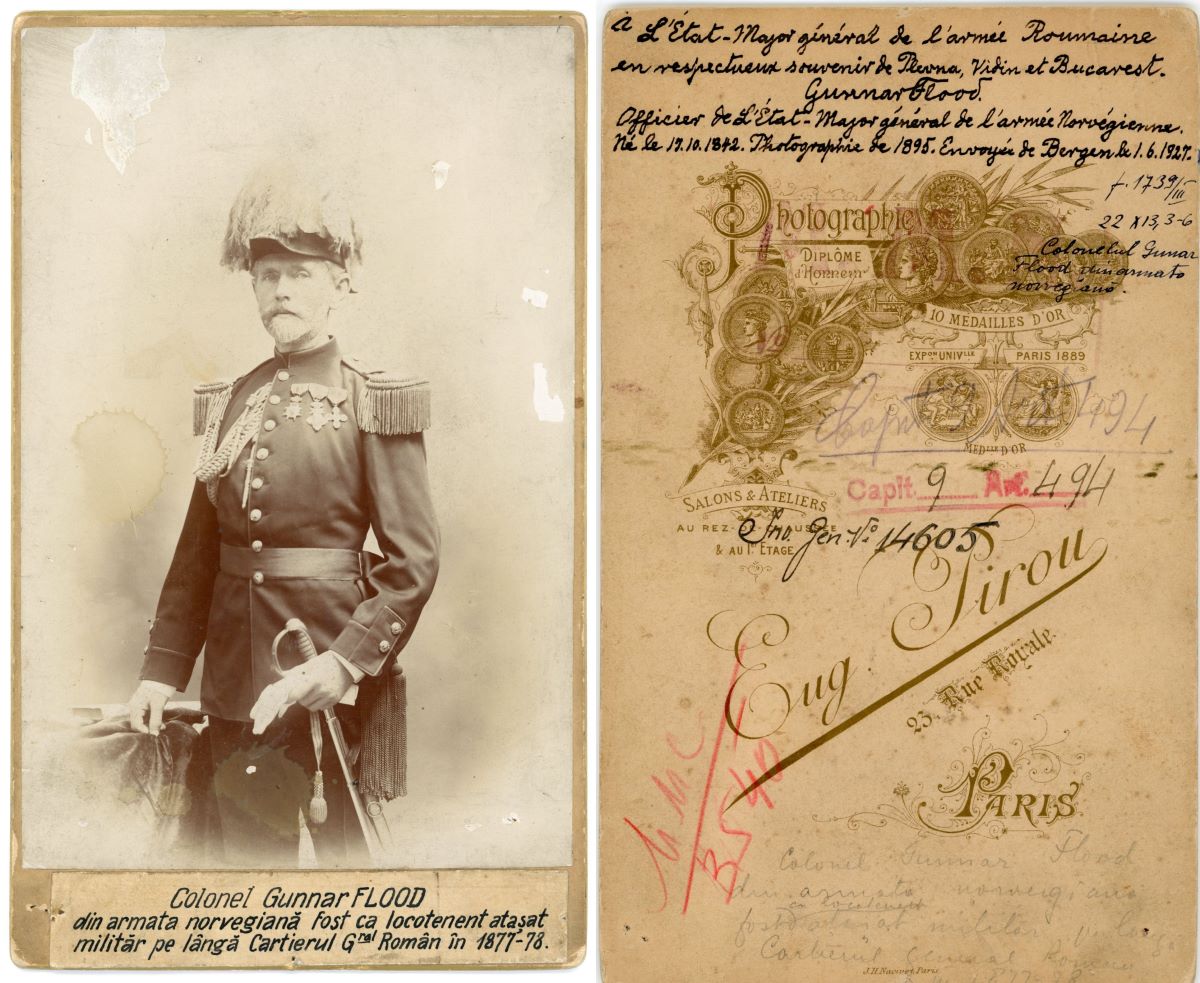 Colonel Gunnar FLOOD
din armata norvegiană fost ca locotenent atașat
militar pe lângă Cartierul Gral Român în 1877-78.
à L'État-Major général de l'armée Roumaine
en respectueux souvenir de Plevna, Vidin et Bucarest.
Gunnar Flood.
Officier de L'État-Major général de l'armée Norvégienne.
Né le 17.10.1842. Photographie de 1895. Envoyée de Bergen le 1.6.1927.
f. 1739/III
22 x 13,3-6
Colonelul Gunar
Flood din armata
norvegiană.
Photographie
DIPLÔME
d'Honneur
10 MEDAILLES D'OR
EXPon UNIVlle PARIS 1889
MEDlle D'OR
494
Capit. 9 Art. 494
SALONS & ATELIERS
AU REZ-DE-CHAUSSÉE
& AU 1r ETAGE
Inv. Gen. No 14605
Eug. Pirou
23, Rue Royale.
PARIS
MMC
B540
Colonel Gunnar Flood
din armata norvegiana
ca locotenent
fost atasat militar pe langa
Cartierul General Roman
1877-78
J.H. Nacivet, Paris